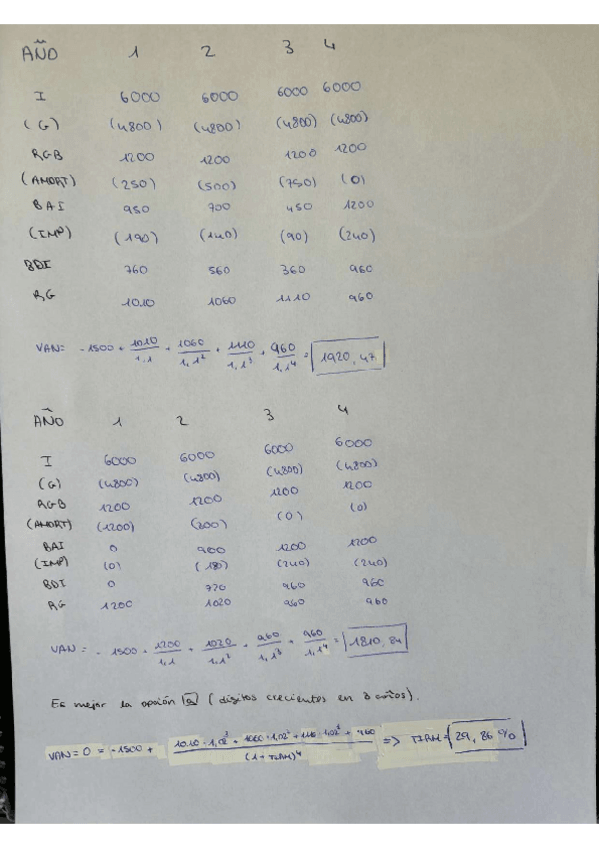 AÑO 1 2 3 4
I 6000 6000 6000 6000
(G) (4800) (4800) (4800) (4800)
RGB 1200 1200 1200 1200
(AMORT) (250) (500) (750) (0)
BAI 950 700 450 1200
(IMP) (190) (140) (90) (240)
BDI 760 560 360 960
RG 1010 1060 1110 960
VAN = -1500 + 1010/1,1 + 1060/1,1² + 1110/1,1³ + 960/1,1⁴ = 1920,47
AÑO 1 2 3 4
I 6000 6000 6000 6000
(G) (4800) (4800) (4800) (4800)
RGB 1200 1200 1200 1200
(AMORT) (1200) (200) (0) (0)
BAI 0 900 1200 1200
(IMP) (0) (180) (240) (240)
BDI 0 720 960 960
RG 1200 1020 960 960
VAN = -1500 + 1200/1,1 + 1020/1,1² + 960/1,1³ + 960/1,1⁴ = 1810,84
Es mejor la opción a (dígitos crecientes en 3 años).
VAN = 0 = -1500 + (1010·1,02³ + 1060·1,02² + 1110·1,02 + 960)/(1+TIRM)⁴ => TIRM = 29,86%